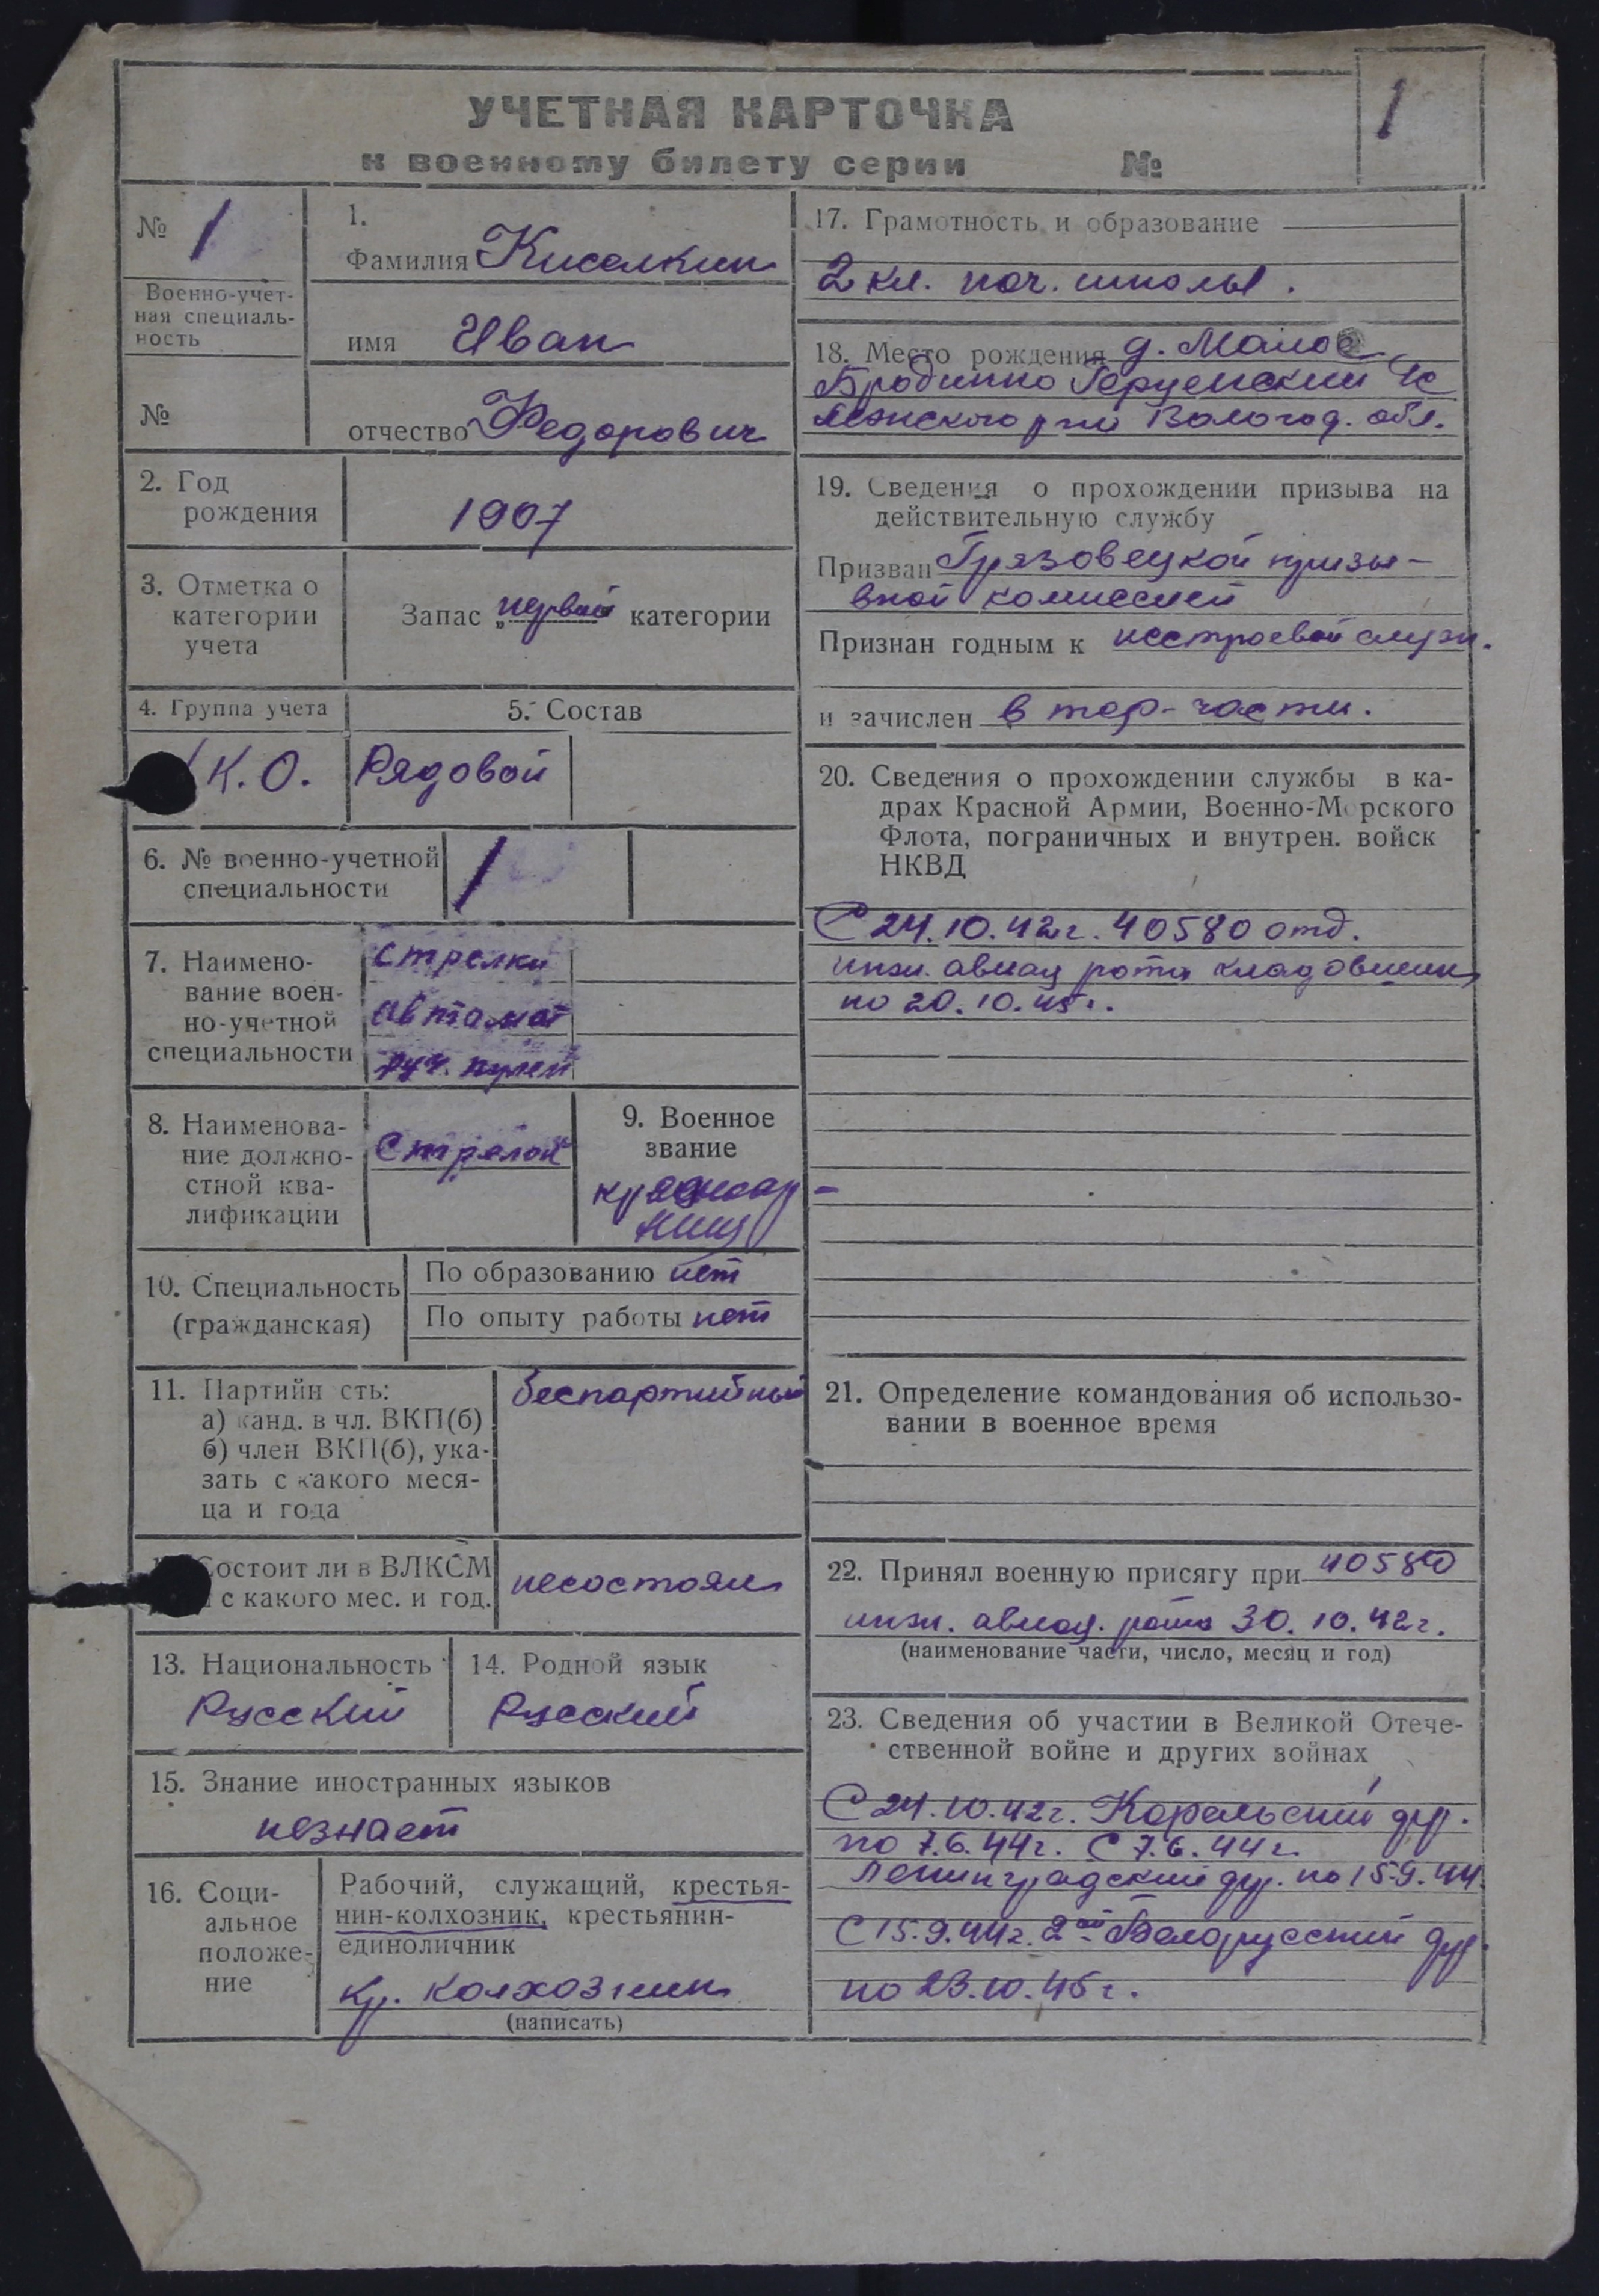 УЧЕТНАЯ КАРТОЧКА
1
к военному билету серии №
№ 1
Военно-учет-
ная специаль-
ность
№
1.
Фамилия Киселкин
имя Иван
отчество Федорович
2. Год
рождения
1907
3. Отметка о
категории
учета
Запас „первой категории
4. Группа учета
К.О.
5. Состав
Рядовой
6. № военно-учетной
специальности
1
7. Наимено-
вание воен-
но-учетной
специальности
Стрелки
автомат
руч. пулем
8. Наименова-
ние должно-
стной ква-
лификации
Стрелок
9. Военное
звание
красноар-
меец
10. Специальность
(гражданская)
По образованию нет
По опыту работы нет
11. Партийн сть:
а) канд. в чл. ВКП(б)
б) член ВКП(б), ука-
зать с какого меся-
ца и года
беспартийный
Состоит ли в ВЛКСМ
с какого мес. и год.
несостоял
13. Национальность
Русский
14. Родной язык
Русский
15. Знание иностранных языков
незнает
16. Соци-
альное
положе-
ние
Рабочий, служащий, крестья-
нин-колхозник, крестьянин-
единоличник
кр. колхозник
(написать)
17. Грамотность и образование
2 кл. нач. школы.
18. Место рождения д. Малое
Бродино
Вологод. обл.
19. Сведения о прохождении призыва на
действительную службу
Призван Грязовецкой призы-
вной комиссией
Признан годным к нестроевой служ.
и зачислен в тер-части.
20. Сведения о прохождении службы в ка-
драх Красной Армии, Военно-Морского
Флота, пограничных и внутрен. войск
НКВД
С 24.10.42г. 40580 отд.
инж. авиац рота кладовщик
по 20.10.45г.
21. Определение командования об использо-
вании в военное время
22. Принял военную присягу при 40580
инж. авиац. рота 30.10.42г.
(наименование части, число, месяц и год)
23. Сведения об участии в Великой Отече-
ственной войне и других войнах
С 24.10.42г. Карельский фр.
по 7.6.44г. С 7.6.44г.
Ленинградский фр. по 15.9.44
С 15.9.44г. 2ой Белорусский фр.
по 23.10.45г.